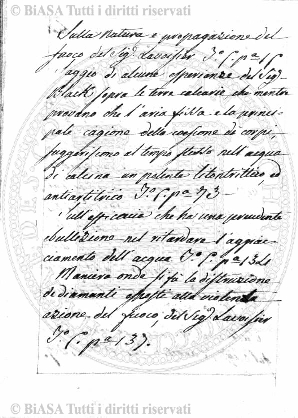 © BiASA Tutti i diritti riservati
Sulla natura e propagazione del
fuoco del Sig. Lavoisier
Saggio di alcune esperienze del Sig.
Black sopra le terre calcarie che
provano che l'aria fissa e la princi-
pale cagione della coesione de corpi,
suggeriscono al tempo stesso nell'acqua
di calcina un potente litontrittico, ed
antiartitrico
Sull'efficacia che ha una precedente
ebullezione nel ritardare l'aggiac-
ciamento dell'acqua
Maniera onde si fa la distruzione
de diamanti esposti alla violenta
azione del fuoco, del Sig. Lavoisier
pa 137.
© BiASA Tutti i diritti riservati